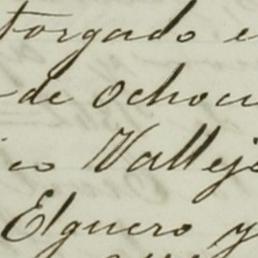 torgado e
de ochoci
ico Vallejo
Elguero y